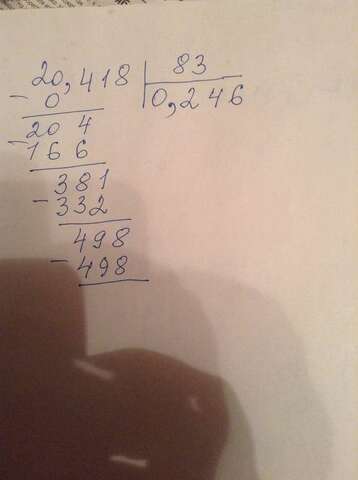 20,418 | 83
- 0 | 0,246
204
- 166
381
- 332
498
- 498